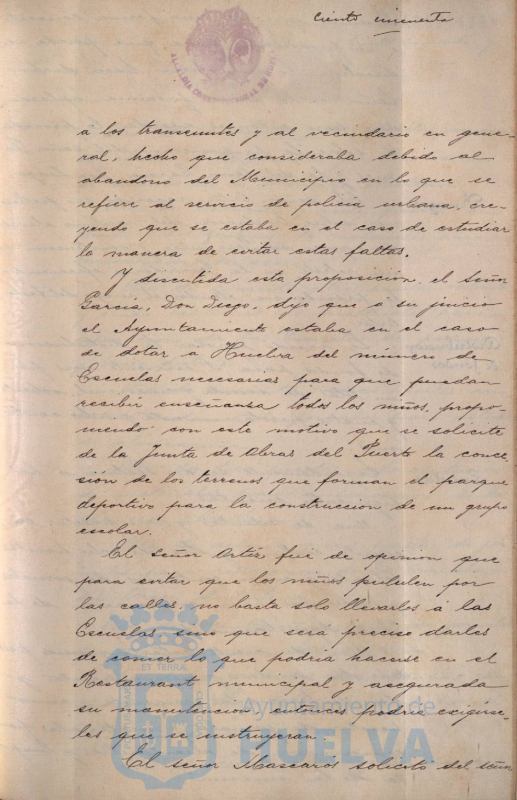 ciento cincuenta
a los transeuntes y al vecindario en gene-
ral, hecho que consideraba debido al
abandono del Municipio en lo que se
refiere al servicio de policia urbana, cre-
yendo que se estaba en el caso de estudiar
la manera de evitar estas faltas.
Y discutida esta proposición, el Señor
Garcia, Don Diego, dijo que á su juicio
el Ayuntamiento estaba en el caso
de dotar a Huelva del número de
Escuelas necesarias para que puedan
recibir enseñanza todos los niños, propo-
niendo con este motivo que se solicite
de la Junta de Obras del Puerto la conce-
sión de los terrenos que forman el parque
deportivo para la construccion de un grupo
escolar.
El señor Ortiz fué de opinion que
para evitar que los niños pululen por
las calles, no basta solo llevarlos á las
Escuelas sino que será preciso darles
de comer lo que podria hacerse en el
Restaurant municipal y asegurada
su manutencion entonces podria exigirse-
les que se instruyeran.
El señor Mascarós solicitó del señor
ET TERRA
Ayuntamiento de
HUELVA